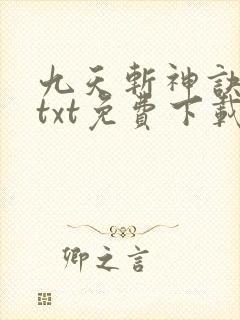 九天斬神訣
txt免費下載
卿之言